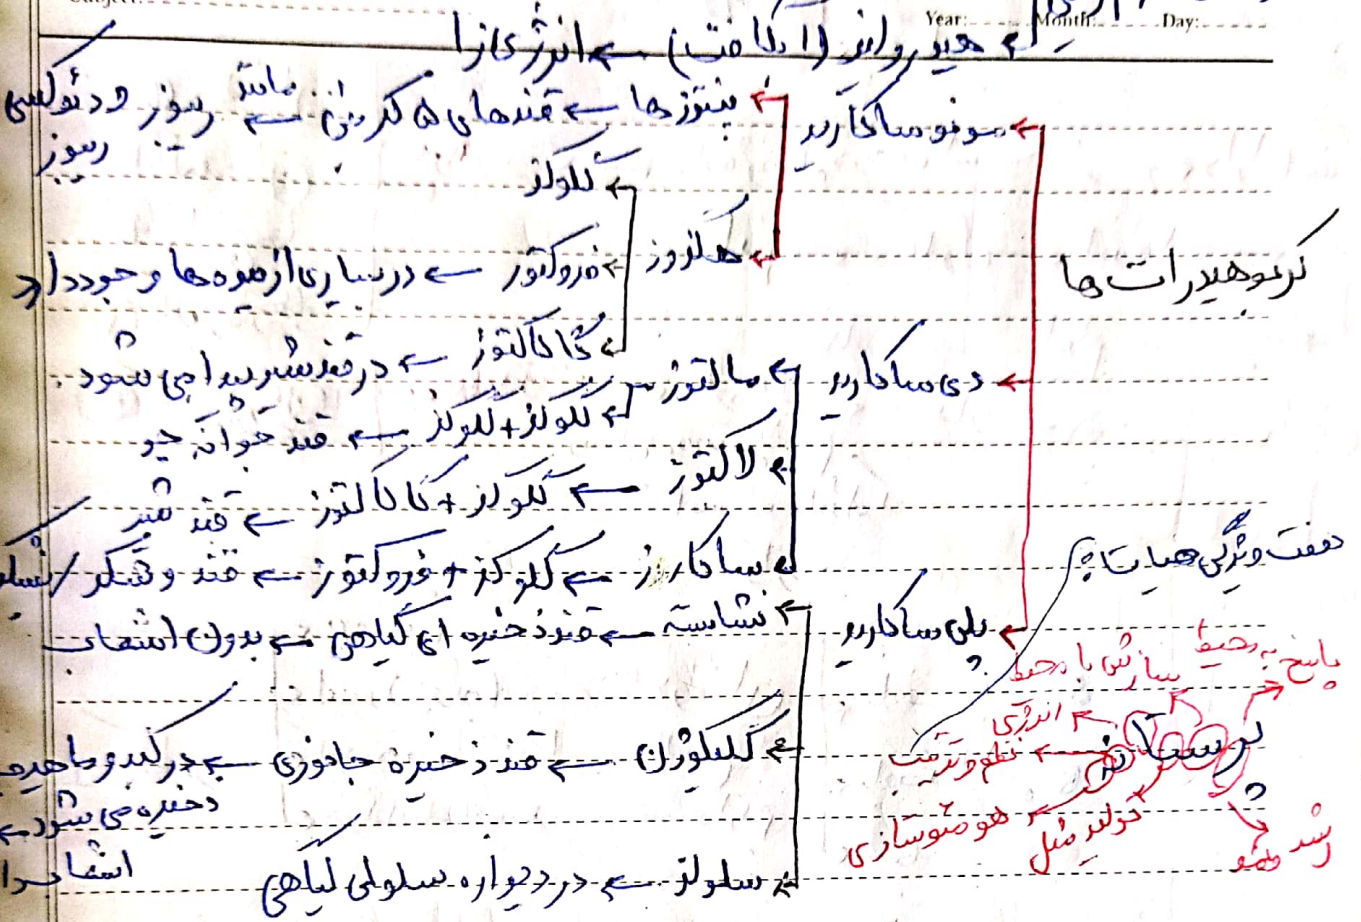 Year: Month: Day:
هیدرولیز (آبکافت) ← انرژی زا
کربوهیدرات ها
مونوساکارید
پنتوزها ← قندهای ۵ کربنی ← مانند ریبوز و دئوکسی
ریبوز
هگزوز
گلوکز
فروکتوز ← در بسیاری از میوه ها وجود دارد
گالاکتوز ← در قند شیر پیدا می شود
دی ساکارید
مالتوز
گلوکز + گلوکز ← قند جوانه جو
لاکتوز ← گلوکز + گالاکتوز ← قند شیر
ساکارز ← گلوکز + فروکتوز ← قند و شکر /
پلی ساکارید
نشاسته ← قند ذخیره ای گیاهی ← بدون انشعاب
گلیکوژن ← قند ذخیره جانوری ← در کبد و ماهیچه
ذخیره می شود ←
انشعاب دار
سلولز ← در دیواره سلولی گیاهی
هفت ویژگی حیات:
پاسخ به محیط
سازش با محیط
انرژی
نظم و ترتیب
هومئوستازی
تولید مثل
رشد نمو